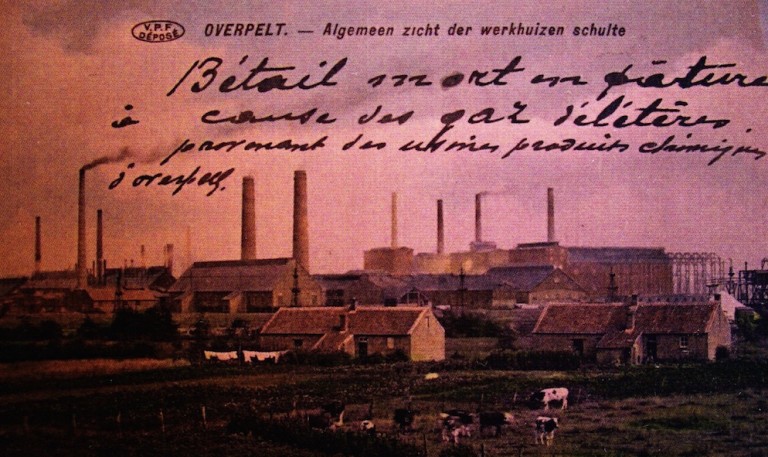 V.P.F
DÉPOSÉ
OVERPELT. — Algemeen zicht der werkhuizen schulte
Bétail mort en pâture
à cause des gaz délétères
provenant des usines produits chimiques
d'overpelt.